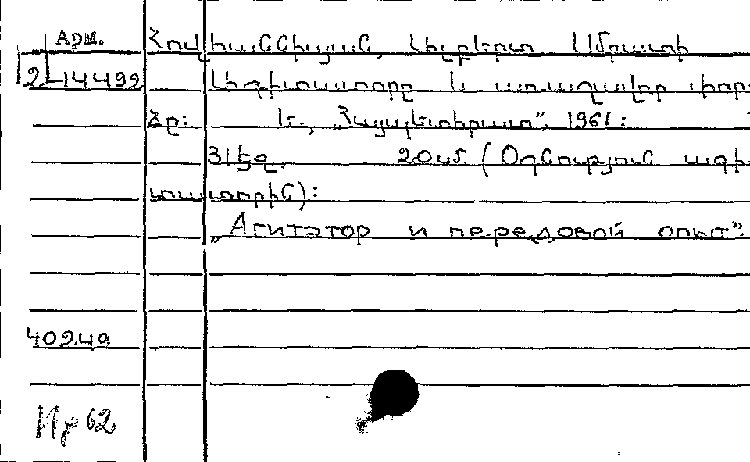 Арм.
Հովհաննիսյան, Ալբերտ Սմբատի
2-14499
Ագիտատորը և առաջավոր փոր
Եր.
"Հայպետհրատ", 1961:
31 էջ. 20սմ (Օգնություն ագի
տատորին):
"Агитатор и передовой опыт".
40949
62